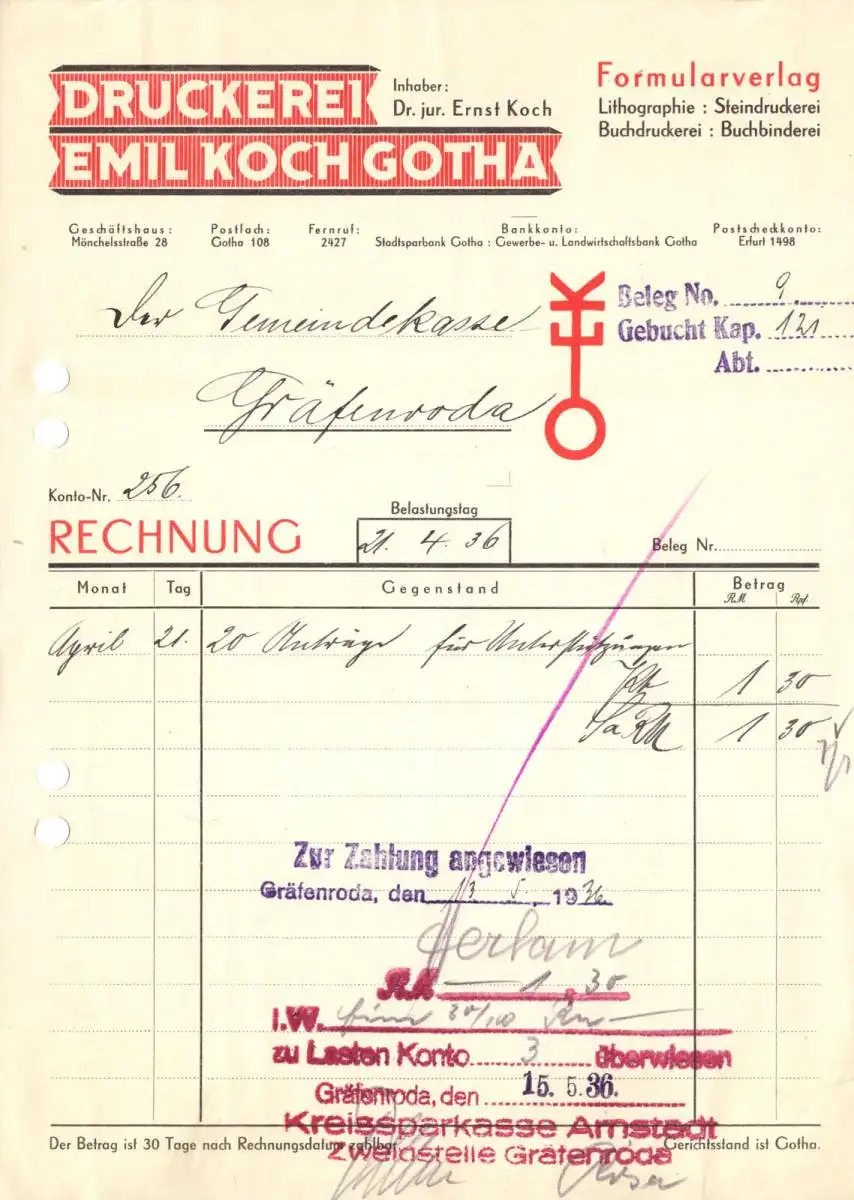 DRUCKEREI
EMIL KOCH GOTHA
Inhaber:
Dr. jur. Ernst Koch
Formularverlag
Lithographie : Steindruckerei
Buchdruckerei : Buchbinderei
Geschäftshaus:
Mönchelsstraße 28
Postfach:
Gotha 108
Fernruf:
2427
Bankkonto:
Stadtsparbank Gotha : Gewerbe- u. Landwirtschaftsbank Gotha
Postscheckkonto:
Erfurt 1498
Der Gemeindekasse
Gräfenroda
EK
Beleg No. 9
Gebucht Kap. 121
Abt.
Konto-Nr. 256.
RECHNUNG
Belastungstag
21. 4. 36
Beleg Nr.
Monat Tag Gegenstand Betrag
RM Rpf
April 21. 20 Anträge für Unterstützungen
1 30
Sa RM 1 30
Zur Zahlung angewiesen
Gräfenroda, den 13 5. 1936
RM 1.30
I.W. 30/100
zu Lasten Konto 3 überwiesen
Gräfenroda, den 15. 5. 36.
Kreissparkasse Arnstadt
Zweigstelle Gräfenroda
Der Betrag ist 30 Tage nach Rechnungsdatum zahlbar
Gerichtsstand ist Gotha.